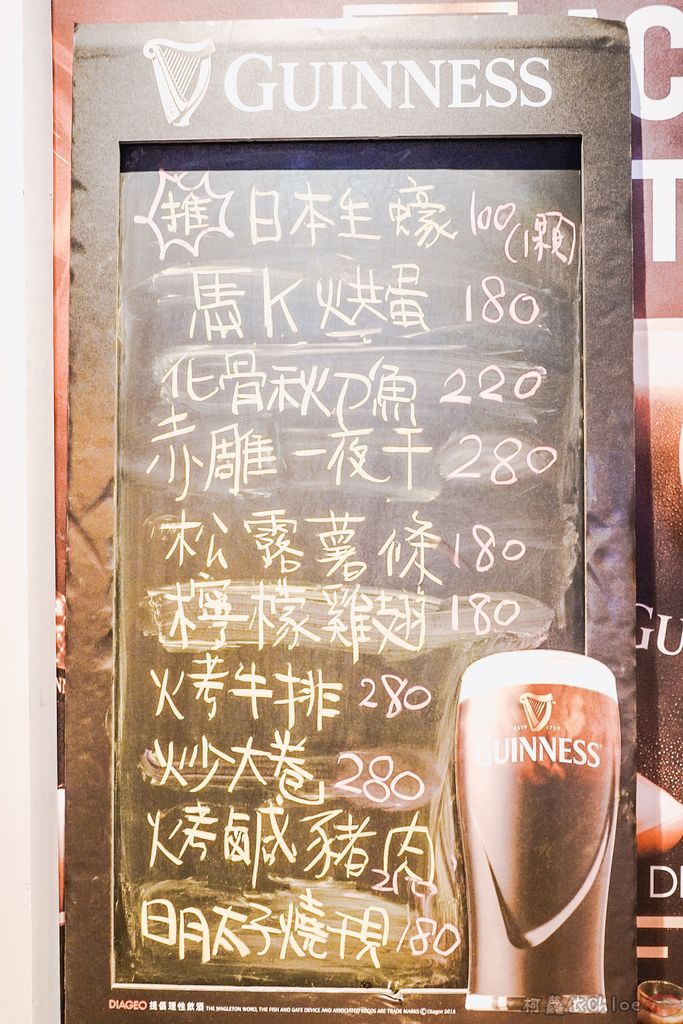 GUINNESS
推 日本生蠔 100(1顆)
馬K烘蛋 180
化骨秋刀魚 220
赤雕一夜干 280
松露薯條 180
檸檬雞翅 180
火考牛排 280
炒大卷 280
烤鹹豬肉 210
明太子燒干貝 180
ESTD 1759
GUINNESS
GU
DIAGEO 提倡理性飲酒 THE GUINNESS WORD, THE FISH AND GATE DEVICE AND ASSOCIATED LOGOS ARE TRADE MARKS ©Diageo 2015
柯蘿依Chloe